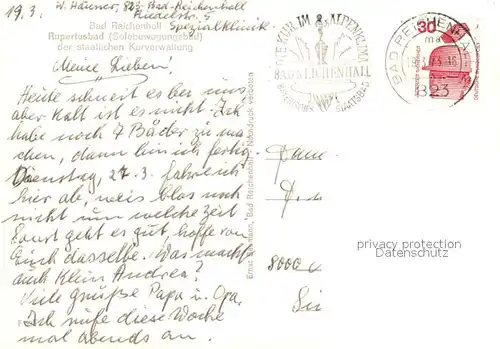 19.3. W. Häuser, 823 Bad-Reichenhall
Rinckstr. 5
Spezialklinik.
Bad Reichenhall
Rupertusbad (Solebewegungsbad)
der staatlichen Kurverwaltung
Meine Lieben!
Heute schneit es bei uns
aber kalt ist es nicht. Ich
habe noch 7 Bäder zu ma
chen, dann bin ich fertig.
Dienstag, 27.3. fahre ich
hier ab, weis blos noch
nicht um welche Zeit
Sonst geht es gut, hoffe von
Euch dasselbe. Was macht
auch Klein Andrea?
Viele Grüße Papa u. Opa.
Ich rufe diese Woche
mal abends an.
Bad Reichenhall - Nachdruck verboten
DIE KUR IM ALPENKLIMA
BAD REICHENHALL
STAATSBAD
BAD REICHENHALL
823
30
8000
privacy protection
Datenschutz